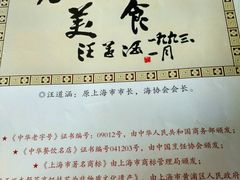 美食
汪道涵
一九九三.
一月
汪道涵：原上海市市长，海协会会长。
★《中华老字号》证书编号：09012号，由中华人民共和国商务部颁发；
★《中华餐饮名店》证书编号：041203号，由中国烹饪协会颁发；
★《上海市著名商标》由上海市商标管理局颁发；
由上海市黄浦区人民政府